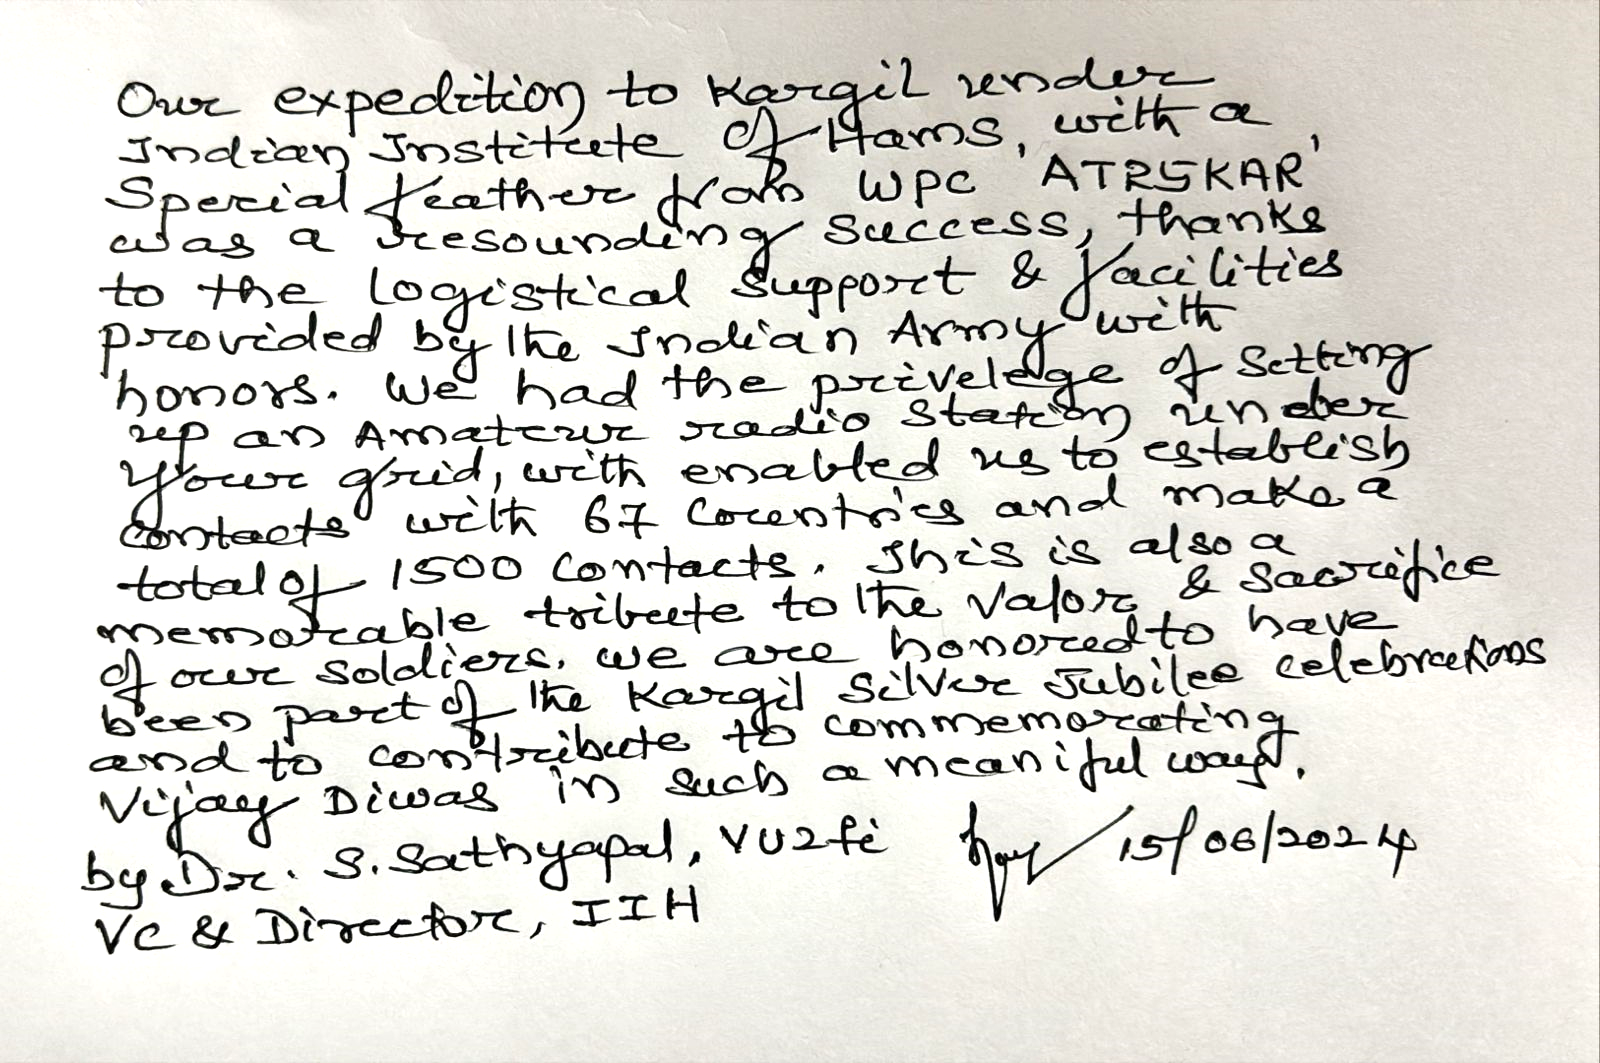 Our expedition to Kargil under
Indian Institute of Hams, with a
Special feather from WPC 'AT25KAR'
was a resounding success, thanks
to the logistical support & facilities
provided by the Indian Army with
honors. We had the privelege of setting
up an Amateur radio station under
your grid, with enabled us to establish
contacts with 67 Countries and make a
total of 1500 contacts. This is also a
memorable tribute to the valor & sacrifice
of our soldiers. we are honored to have
been part of the Kargil Silver Jubilee celebrations
and to contribute to commemorating
Vijay Diwas in such a meaniful way.
by Dr. S. Sathyapal, VU2fi 15/06/2024
VC & Director, IIH